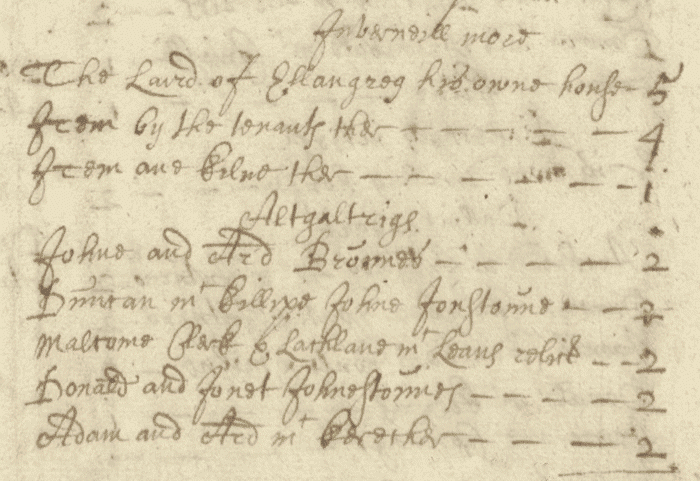 Inverneill more
The Laird of Ellangreg his owne house 5
Item by the tenants ther 4
Item ane kilne ther 1
Altgaltrigs
Johne and Ard Brounes 2
Duncan mc Johne Jonstoune 2
Malcome Clerk & Lachlane mc Leans relick 2
Donald and Jonet Johnestounes 2
Adam and Ard mc 2